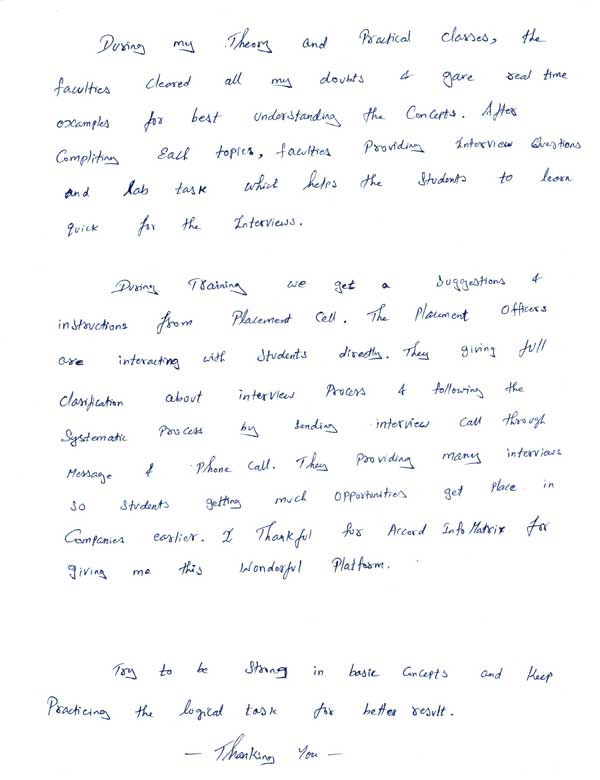 During my Theory and Practical classes, the
faculties cleared all my doubts & gave real time
examples for best understanding the Concepts. After
Compliting Each topics, faculties Providing Interview Questions
and lab task which helps the Students to learn
quick for the Interviews.
During Training we get a Suggestions &
instructions from Placement Cell. The Placement Officers
are interacting with Students directly. They giving full
Clarification about interview Process & following the
Systematic Process by Sending interview Call through
Message & Phone Call. They Providing many interviews
So Students getting much Opportunities get Place in
Companies earlier. I Thankful for Accord Info Matrix for
giving me this Wonderful Platform.
Try to be Strong in basic Concepts and Keep
Practicing the logical task for better result.
— Thanking You —